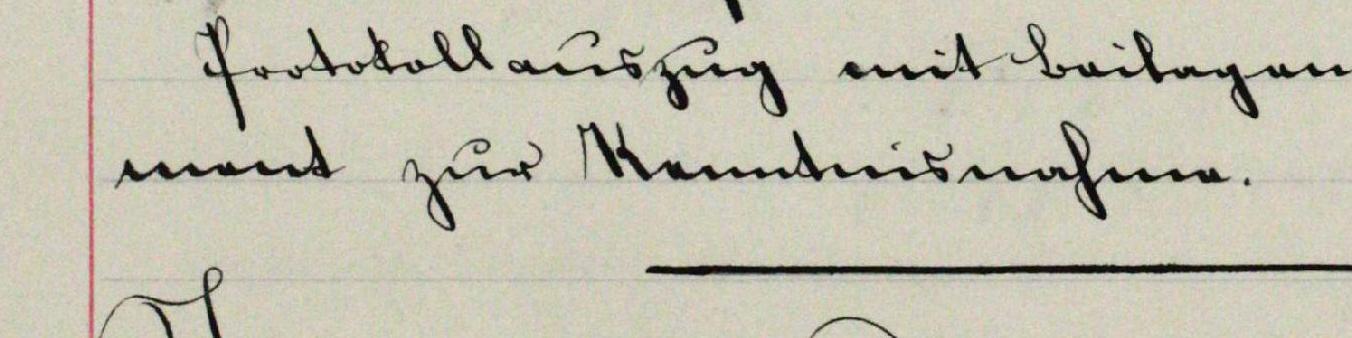 Protokollauszug mit Beilagen
ment zur Kenntnisnahme.